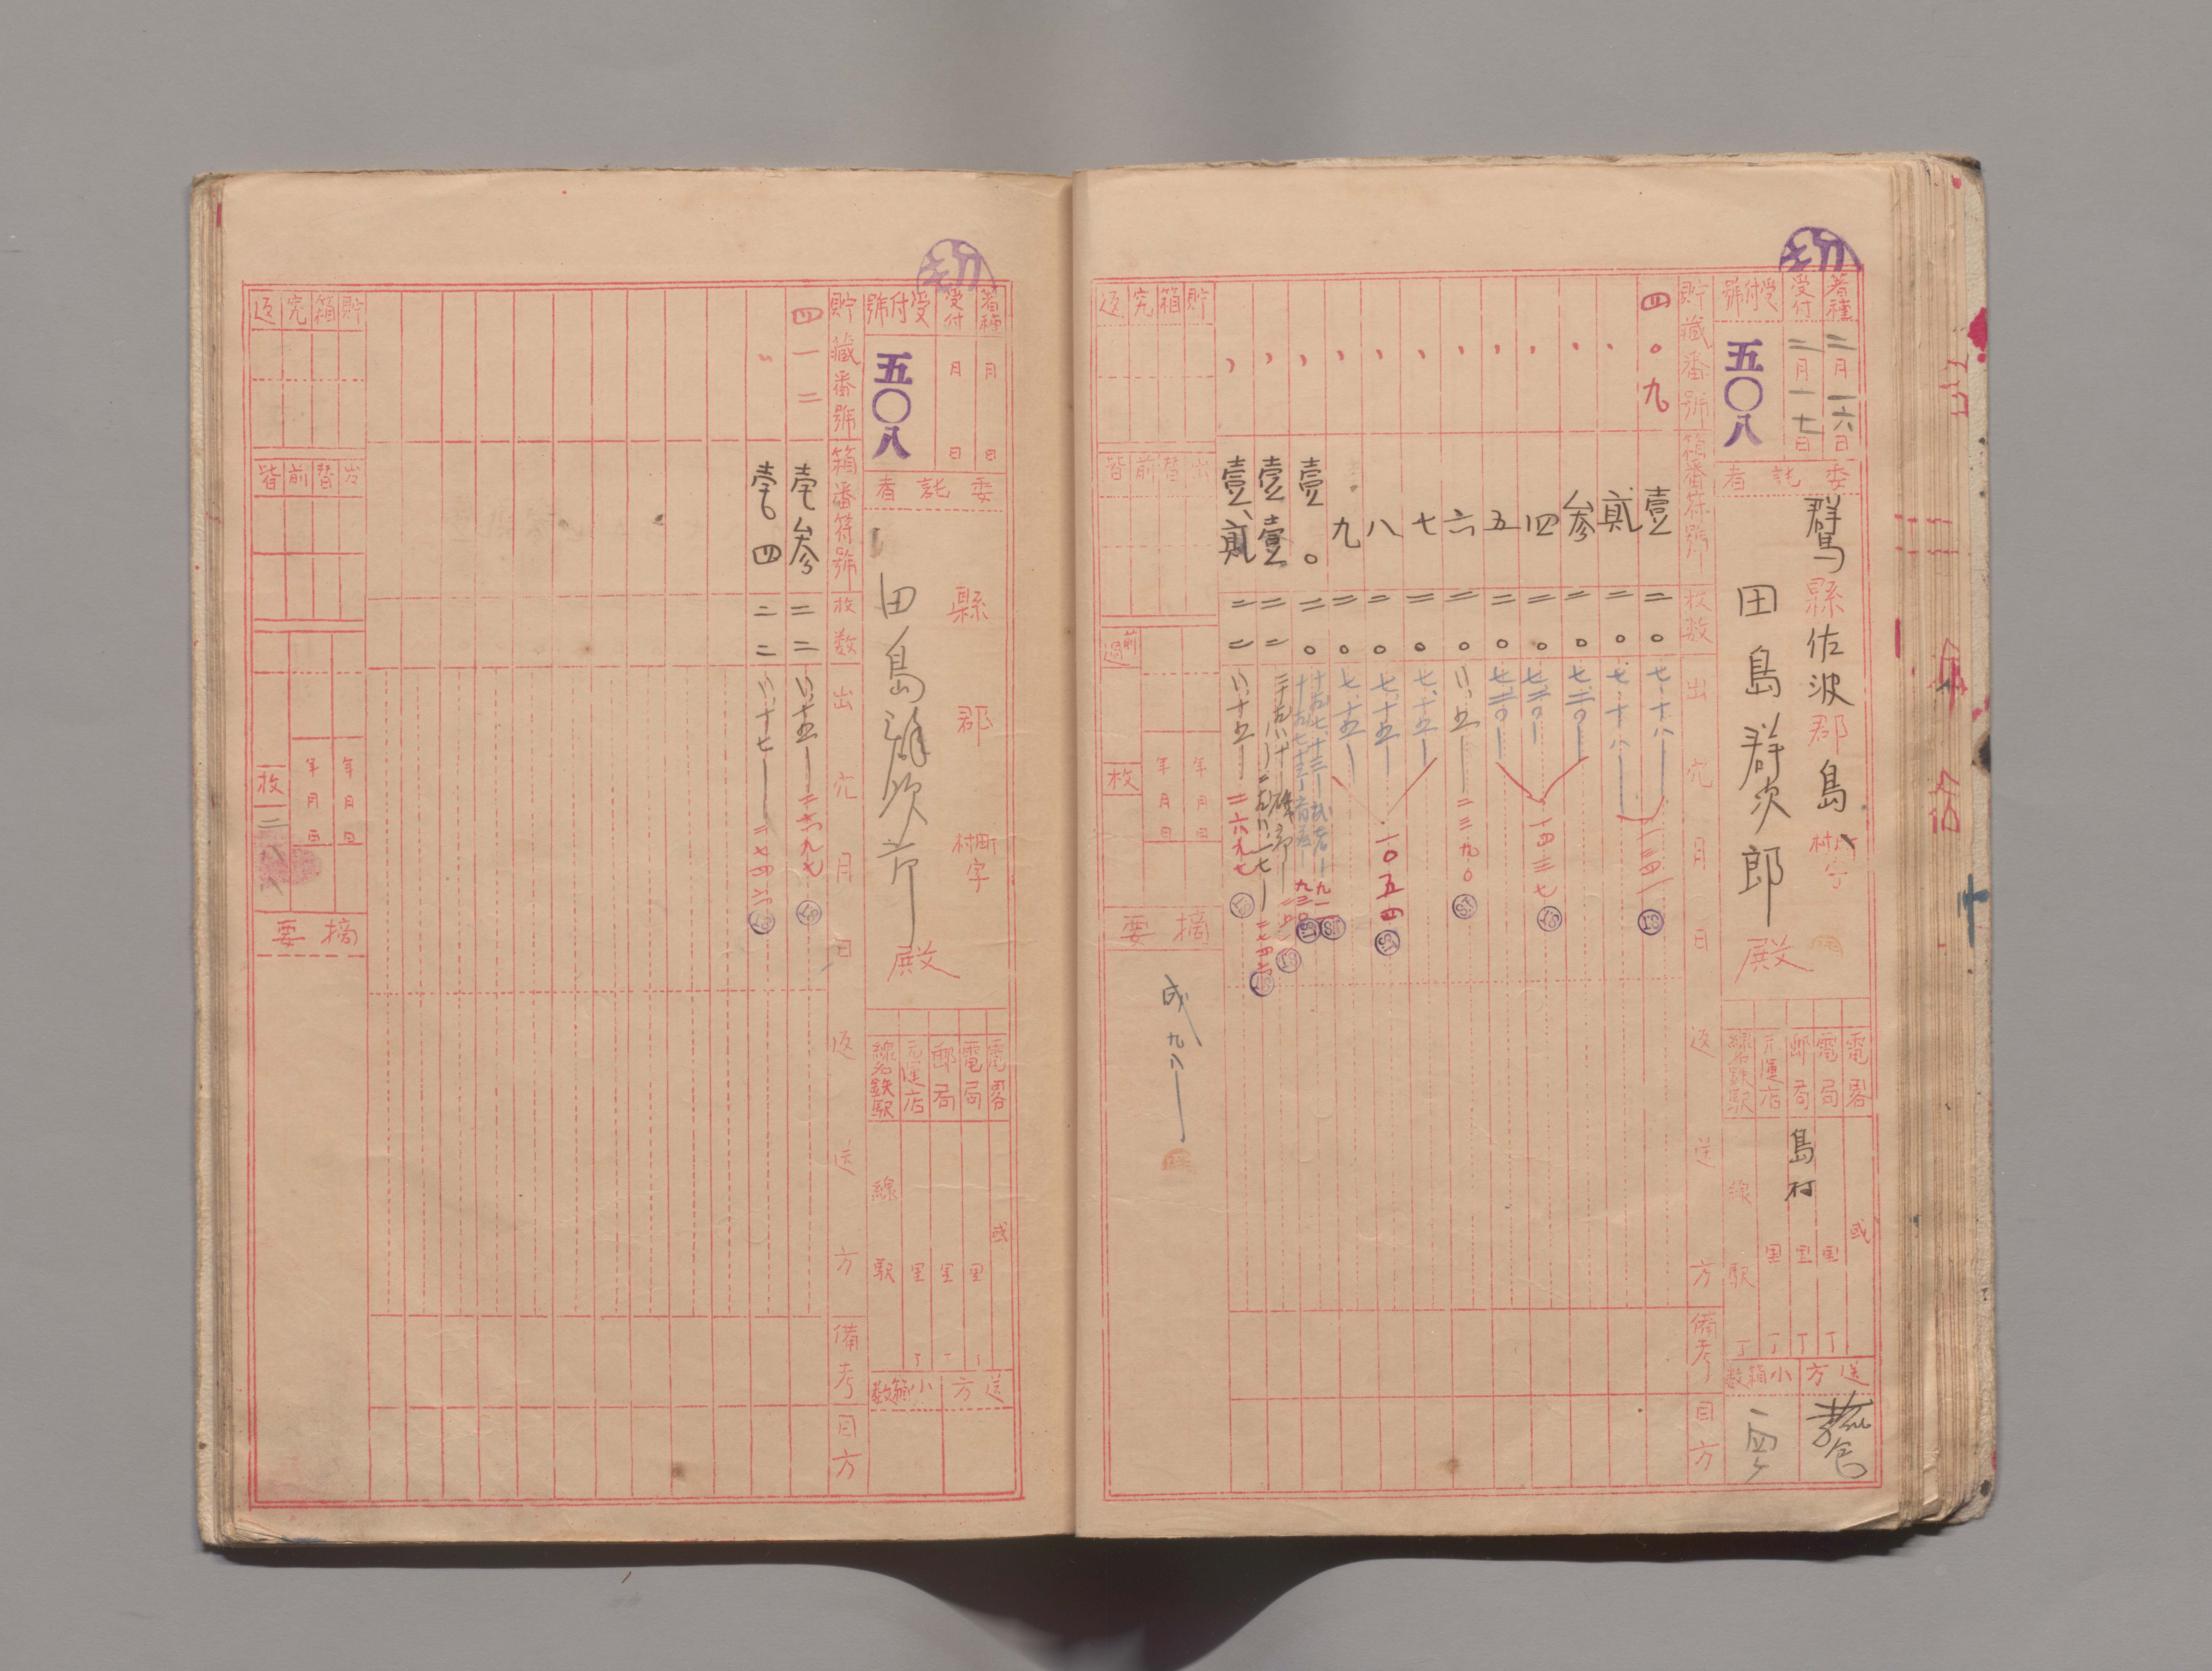 着種 二月一六日
受付 二月一七日
受付號 五〇八
委託者
群馬縣佐波郡島村
田島群次郎殿
電略
電局
郵局 島村
元運店
線名鉄駅 線 駅
送方
小箱数
貯藏番號 箱番符號 枚数 出穴月日 返送方 備考 目方
四〇九 壹 二〇 七、十八
〃 貳 二〇 七、十八 一三四一
〃 参 二〇 七、二〇
〃 四 二〇 七、二〇 一四三七
〃 五 二〇 七、二〇
〃 六 二〇 八、五 二三九〇
〃 七 二〇 七、十五
〃 八 二〇 七、十五 一〇五四
〃 九 二〇 七、十五
〃 壹〇 二〇
〃 壹壹 二二
〃 壹貳 二二 八、十五 二六九七
貯箱完返
出替前皆
前過
年月日
年月日
枚
摘要
着種 月 日
受付 月 日
受付號 五〇八
委託者
縣 郡 町村字
田島群次郎殿
電略
電局
郵局
元運店
線名鉄駅 線 駅
送方
小箱数
貯藏番號 箱番符號 枚数 出穴月日 返送方 備考 目方
四一二 壹参 二二 八、十五 二六九七
〃 壹四 二二 八、十七 二七四六
貯箱完返
出替前皆
年月日
年月日
枚
摘要